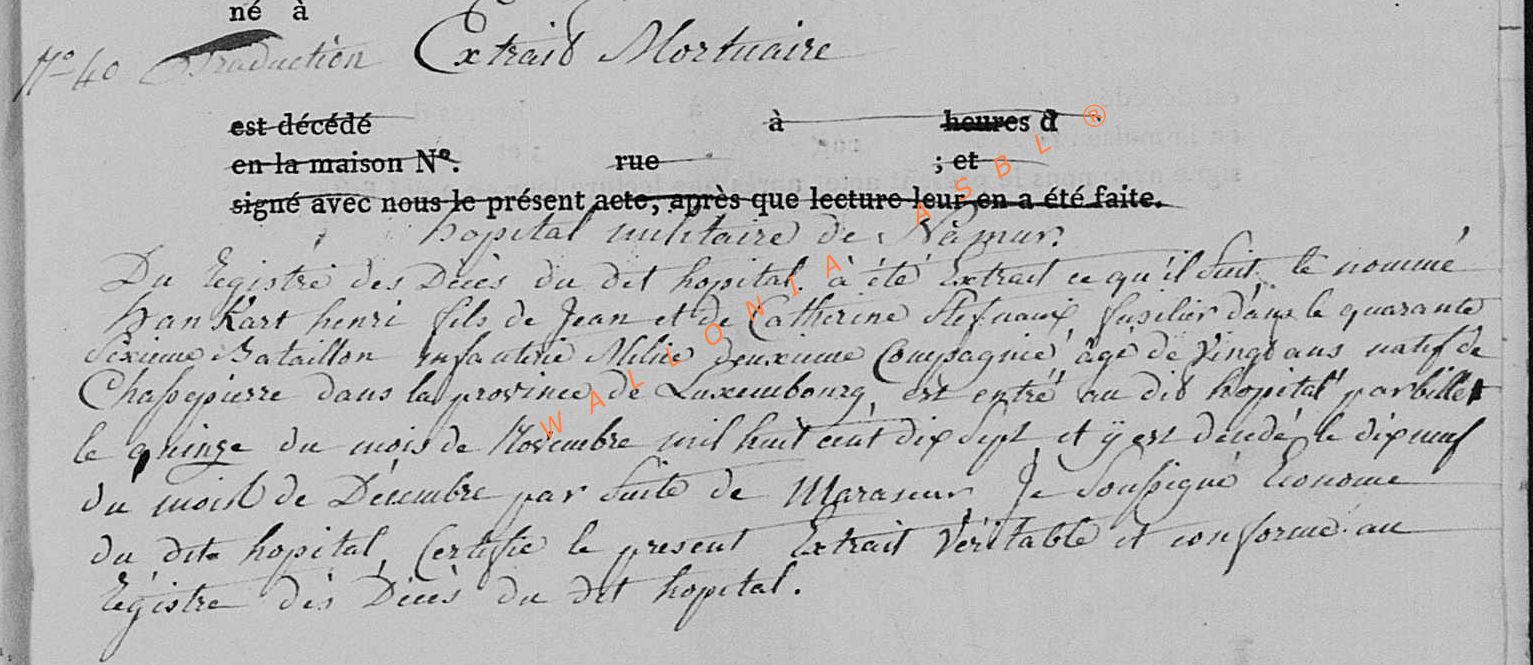 né à
N.o 40 Traduction Extrait Mortuaire
est décédé à heures d
en la maison N.o rue ; et
signé avec nous le présent acte, après que lecture leur en a été faite.
hopital militaire de Namur.
Du Registre des Décès du dit hopital à été Extrait ce qu'il suit le nommé
Hankart henri fils de Jean et de Catherine fusilier dans le quarante
Sixieme Bataillon infanterie Milice deuxieme Compagnie âgé de Vingt ans natif de
Chassepierre dans la province de Luxembourg, est entré au dit hopital par billet
le quinze du mois de Novembre mil huit cent dix sept et y est décédé le dix neuf
du mois de Décembre par suite de Marasme Je Soussigné Econome
du dit hopital, Certifie le present Extrait Véritable et conforme au
Régistre des Décès du dit hopital.
WALLONIA ASBL ®